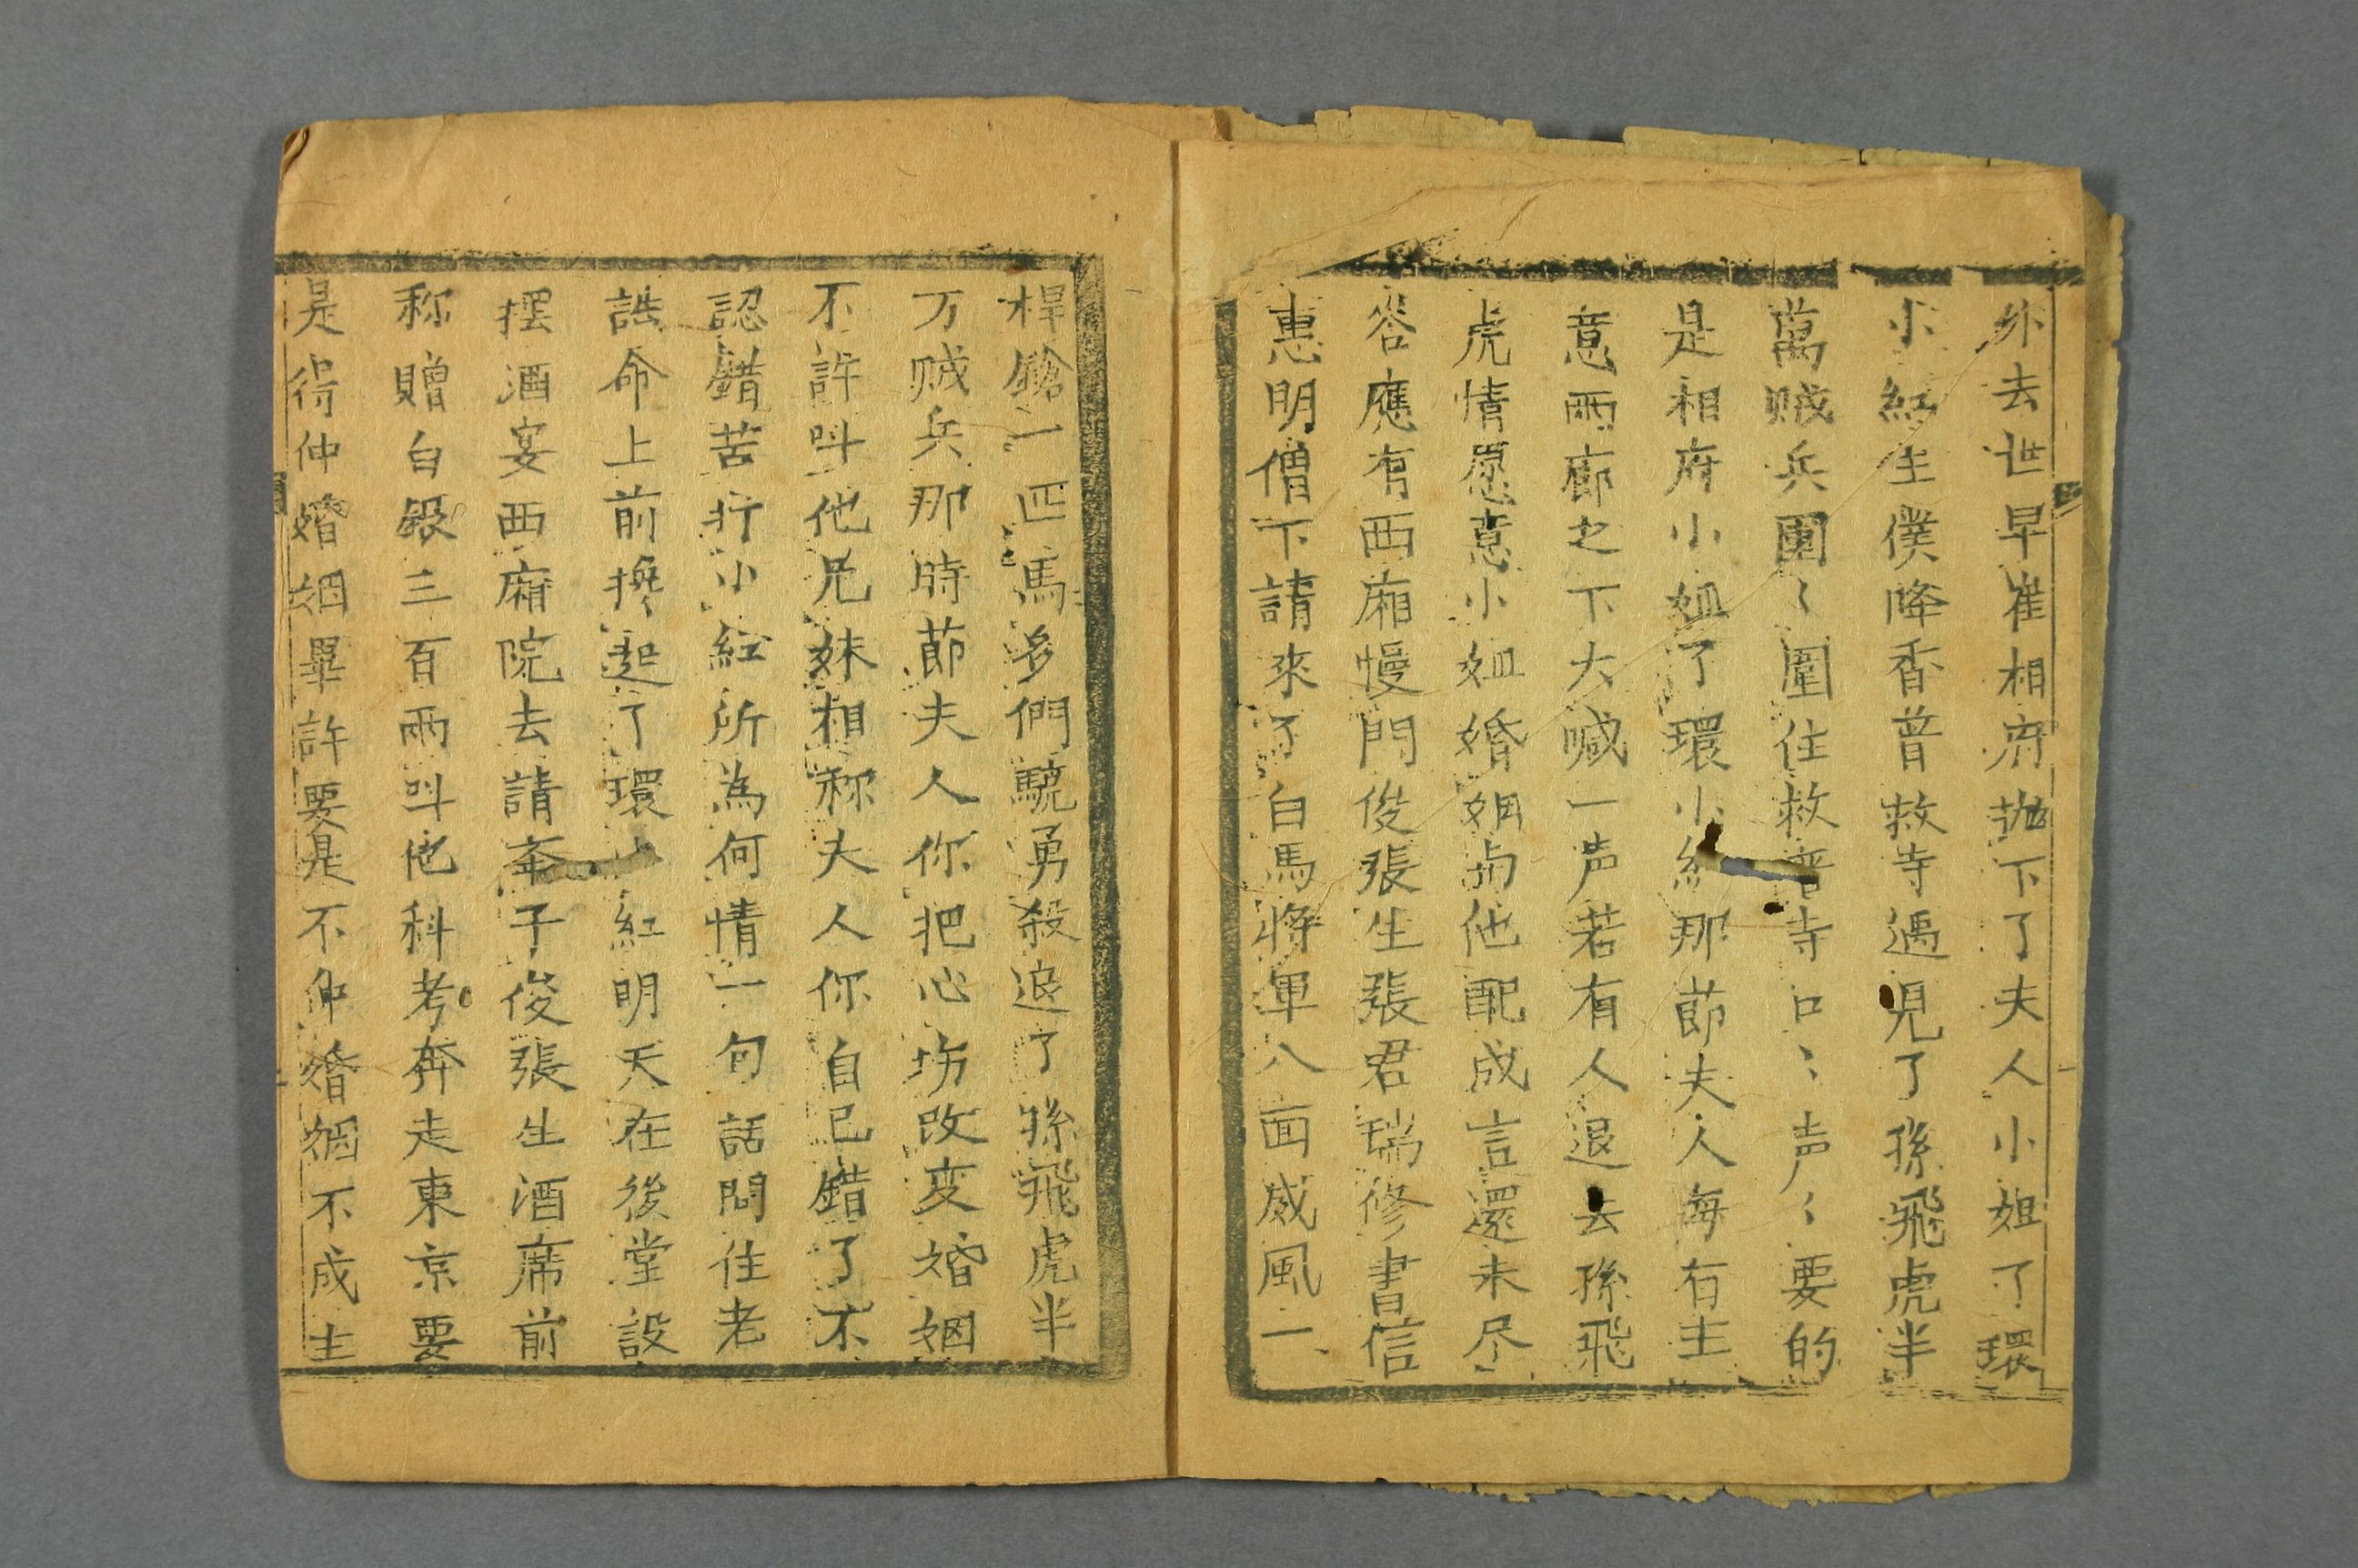 外去世早崔相府抛下了夫人小姐了環
小紅主僕降香普救寺遇見了孫飛虎半
萬賊兵圍〻圍住救普寺口〻声〻要的
是相府小姐了環小紅那節夫人每有主
意兩廊之下大喊一声若有人退去孫飛
虎情愿意小姐婚姻与他配成言還未尽
答應有西廂慢門俊張生張君瑞修書信
惠明僧下請來了白馬將軍八面威風一
桿鎗一匹馬多們驍勇殺退了孫飛虎半
万賊兵那時節夫人你把心坊改变婚姻
不許呌他兄妹相称夫人你自己錯了不
認錯苦打小紅所為何情一句話問住老
誥命上前攙起了環小紅明天在後堂設
摆酒宴西廂院去請才子俊張生酒席前
称贈白銀三百兩呌他科考奔走東京要
是得仲婚姻畢許要是不仲婚姻不成主